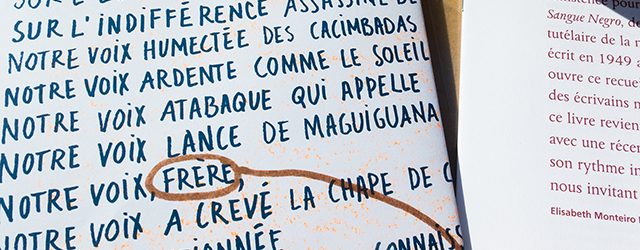 SUR L'INDIFFÉRENCE ASSASSINE D
NOTRE VOIX HUMECTÉE DES CACIMBADAS
NOTRE VOIX ARDENTE COMME LE SOLEIL
NOTRE VOIX ATABAQUE QUI APPELLE
NOTRE VOIX LANCE DE MAGUIGUANA
NOTRE VOIX, FRÈRE,
NOTRE VOIX A CREVÉ LA CHAPE DE C
IONNÉE CONNAIS
existence pour
Sangue Negro, de
tutélaire de la
écrit en 1949 a
ouvre ce recue
des écrivains
ce livre revien
avec une récen
son rythme in
nous invitant
Elisabeth Monteiro